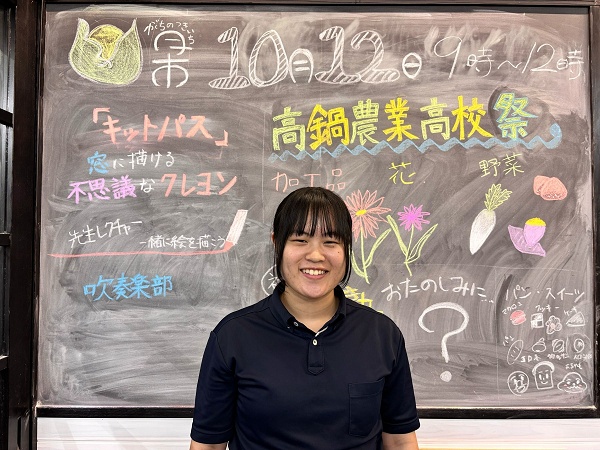 がちのつきいち
市 10月12日 9時～12時
「キットパス」
窓に描ける
不思議なクレヨン
先生レクチャー
一緒に絵を描こう
吹奏楽部
高鍋農業高校祭
加工品 花 野菜
おたのしみに..
?
パン・スイーツ
マカロン クッキー